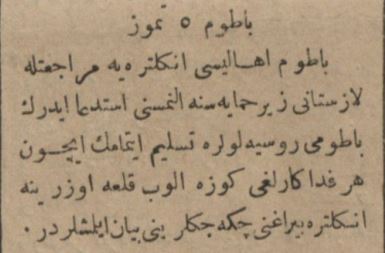 باطوم ٥ تموز
باطوم اهالیسی انكلتره‌یه مراجعتله
لازستانی زیر حمایه‌سنه النمسنی استدعا ایدرك
باطومی روسیه‌لولره تسلیم ایتمامك ایچون
هر فداكارلغی كوزه الوب قلعه اوزرینه
انكلتره بیراغنی چكه‌جكلرینی بیان ایلشلردر.